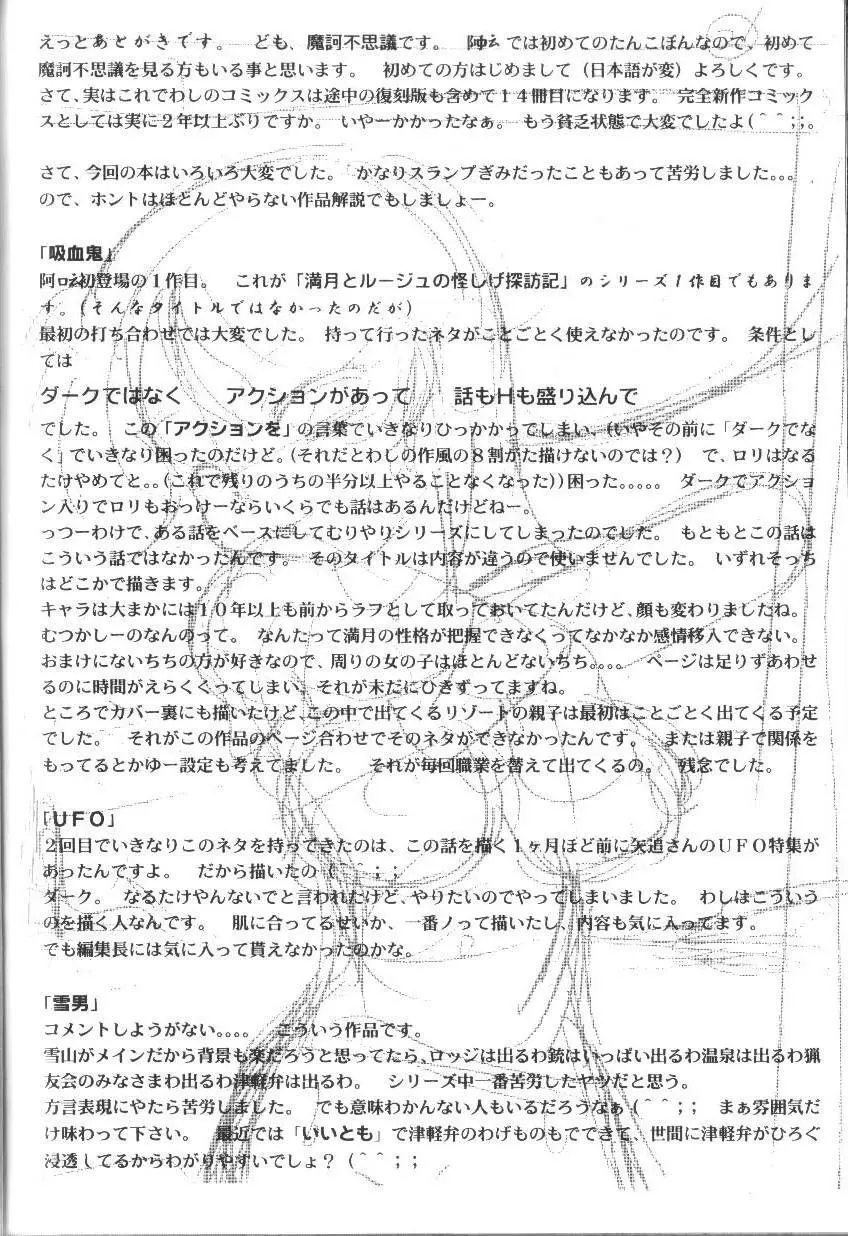 えっとあとがきです。　ども、魔訶不思議です。　阿ロ云では初めてのたんこぼんなので、初めて
魔訶不思議を見る方もいる事と思います。　初めての方はじめまして（日本語が変）よろしくです。
さて、実はこれでわしのコミックスは途中の復刻版も含めて１４冊目になります。　完全新作コミック
スとしては実に２年以上ぶりですか。　いやーかかったなぁ。　もう貧乏状態で大変でしたよ(＾＾；；。
さて、今回の本はいろいろ大変でした。　かなりスランプぎみだったこともあって苦労しました。。。
ので、ホントはほとんどやらない作品解説でもしましょー。
「吸血鬼」
阿ロ云初登場の１作目。　これが「満月とルージュの怪しげ探訪記」のシリーズ１作目でもありま
す。（そんなタイトルではなかったのだが）
最初の打ち合わせでは大変でした。　持って行ったネタがことごとく使えなかったのです。　条件とし
ては
ダークではなく　　アクションがあって　　話もＨも盛り込んで
でした。　この「アクションを」の言葉でいきなりひっかかってしまい、（いやその前に「ダークでな
く」でいきなり困ったのだけど。（それだとわしの作風の８割がた描けないのでは？）　で、ロリはなる
たけやめてと。。（これで残りのうちの半分以上やることなくなった））困った。。。。。　ダークでアクショ
ン入りでロリもおっけーならいくらでも話はあるんだけどねー。
っつーわけで、ある話をベースにしてむりやりシリーズにしてしまったのでした。　もともとこの話は
こういう話ではなかったんです。　そのタイトルは内容が違うので使いませんでした。　いずれそっち
はどこかで描きます。
キャラは大まかには１０年以上も前からラフとして取っておいてたんだけど、顔も変わりましたね。
むつかしーのなんのって。　なんたって満月の性格が把握できなくってなかなか感情移入できない。
おまけにないちちの方が好きなので、周りの女の子はほとんどないちち。。。。　ページは足りずあわせ
るのに時間がえらくくってしまい、それが未だにひきずってますね。
ところでカバー裏にも描いたけど、この中で出てくるリゾートの親子は最初はことごとく出てくる予定
でした。　それがこの作品のページ合わせでそのネタができなかったんです。　または親子で関係を
もってるとかゆー設定も考えてました。　それが毎回職業を替えて出てくるの。　残念でした。
「ＵＦＯ」
２回目でいきなりこのネタを持ってきたのは、この話を描く１ヶ月ほど前に矢追さんのＵＦＯ特集が
あったんですよ。　だから描いたの（＾＾；；
ダーク。　なるたけやんないでと言われたけど、やりたいのでやってしまいました。　わしはこういう
のを描く人なんです。　肌に合ってるせいか、一番ノって描いたし、内容も気に入ってます。
でも編集長には気に入って貰えなかったのかな。
「雪男」
コメントしようがない。。。。　こういう作品です。
雪山がメインだから背景も楽だろうと思ってたら、ロッジは出るわ銃はいっぱい出るわ温泉は出るわ猟
友会のみなさまわ出るわ津軽弁は出るわ。　シリーズ中一番苦労したヤツだと思う。
方言表現にやたら苦労しました。　でも意味わかんない人もいるだろうなぁ（＾＾；；　まぁ雰囲気だ
け味わって下さい。　最近では「いいとも」で津軽弁のわげものもでできて、世間に津軽弁がひろぐ
浸透してるからわがりやすいでしょ？（＾＾；；